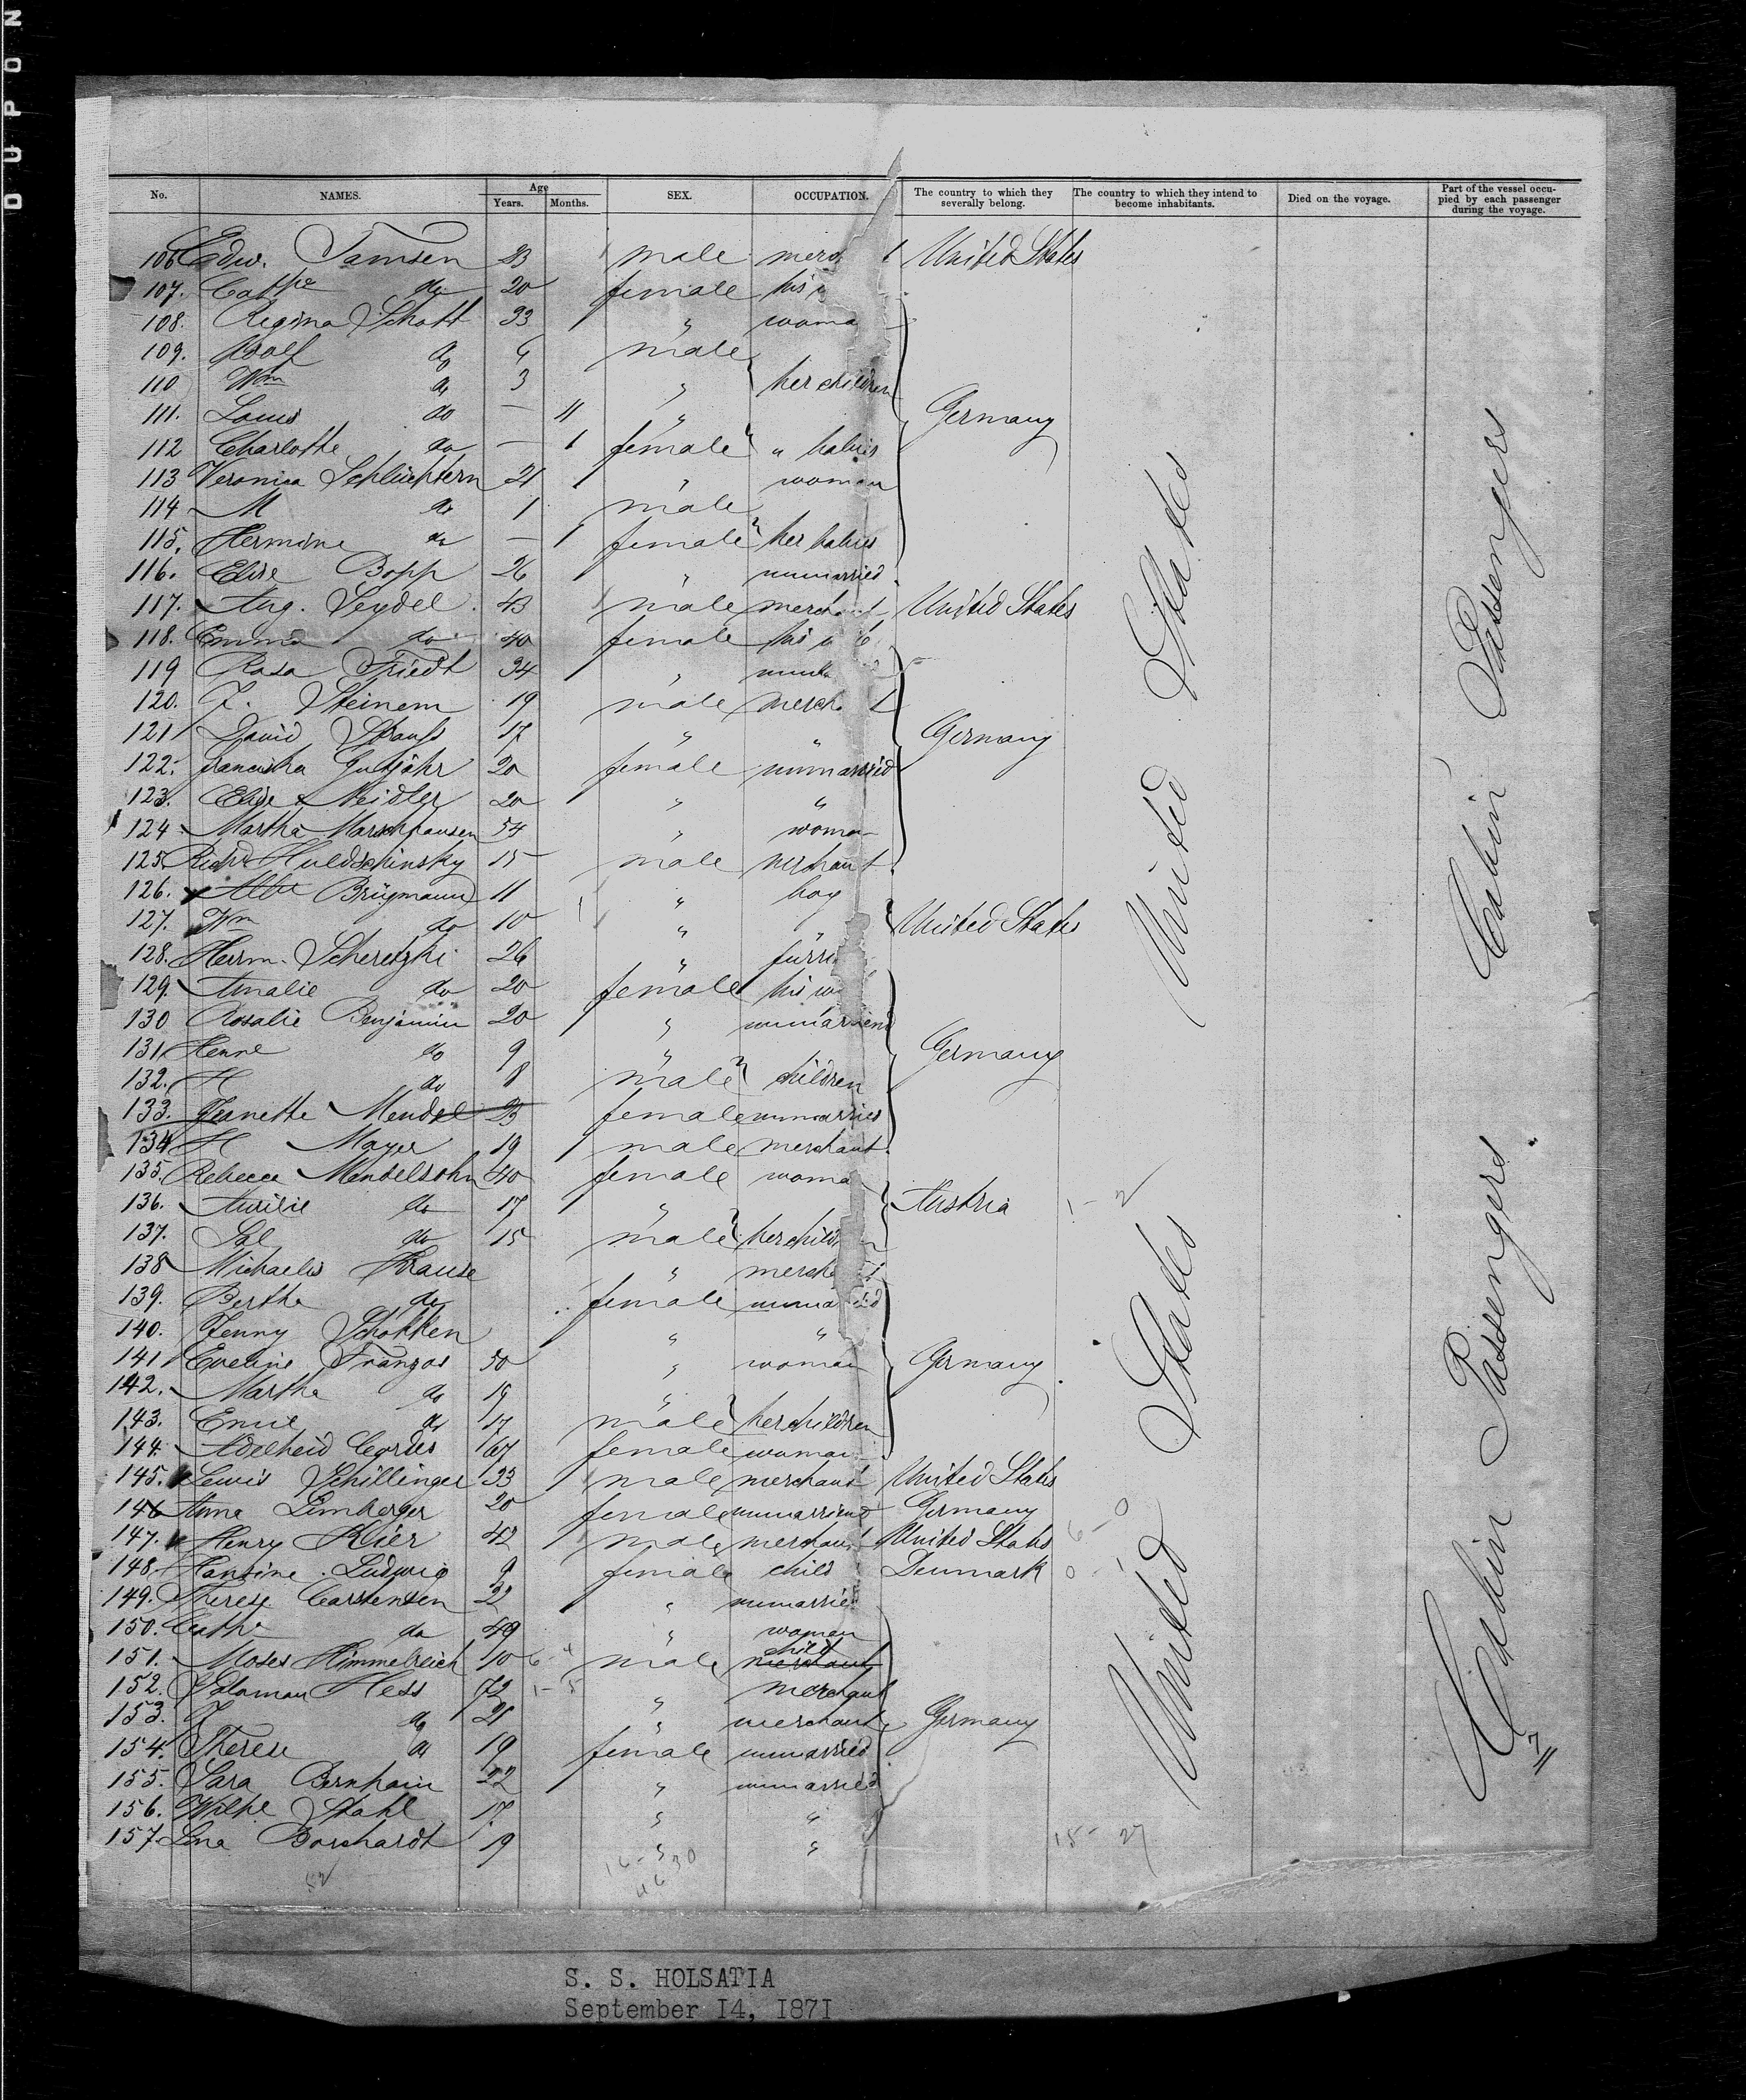 DUPON
No. NAMES. Age Years. Months. SEX. OCCUPATION. The country to which they severally belong. The country to which they intend to become inhabitants. Died on the voyage. Part of the vessel occupied by each passenger during the voyage.
106 Edw. Tamsen 23 male merch t United States
107. Cathe do 20 female his
108. Regina Schott 33 " woma
109. Adolf do 4 male
110 Wm do 3 " her children
111. Louis do — 11 " Germany
112 Charlotte do — 1 female " babies
113 Veronica Schlüchtern 21 " woman
114 M do 1 male
115. Hermine do — 1 female her babies
116. Elise Bopp 26 " unmarried
117. Aug. Seydel 43 male merchant United States
118. Emma do 40 female his
119 Rosa Friedt 34 "
120. J. Steinem 19 male merch t
121 David Strauss 17 " " Germany
122. Franciska Gutjahr 20 female unmarried
123. Elise Neidler 20 " "
124 Martha Marschhausen 54 " woman
125 Richd Huldschinsky 15 male merchant
126. Albe Brügmann 11 " boy
127. Wm do 10 " " United States
128. Herrm. Scheretzki 26 "
129. Amalie do 20 female his
130 Rosalie Benjamin 20 " unmarried
131 Henne do 9 " Germany
132. H do 8 male children
133. Jeanette Mendel 23 female unmarried
134 H Mayer 19 male merchant
135. Rebecca Mendelsohn 40 female woma
136. Aurelie do 17 " Austria 1 - 2
137. Sal do 15 male her child n
138 Michaelis Krause " merch t
139. Berthe do female unma d
140. Jenny Schokken " "
141 Eveline Franzos 50 " woman Germany
142. Martha do 19 "
143. Emil do 17 male her children
144. Adelheid Cordes 67 female woman
145. Lewis Schillinger 33 male merchant United States
146 Anna Limberger 20 female unmarried Germany
147. Henry Rier 42 male merchant United States 6 - 0
148. Hansine Ludwig 9 female child Denmark 0 - 1
149. Therese Carstensen 22 " unmarried
150. Cathe do 49 " woman
151. Moses Himmelreich 10 6 - 4 male merchant child
152. Salomon Hess 72 1 - 5 " merchant
153. J do 21 " merchant Germany
154. Therese do 19 female unmarried
155. Sara Bernhaim 22 " unmarried
156. Wilhe Stahl 17 " "
157 Lina Borchardt 19 " "
52 16 - 5 30 46 15 - 27
United States
United States
Cabin Passengers
Cabin Passengers
S. S. HOLSATIA
September 14, 1871